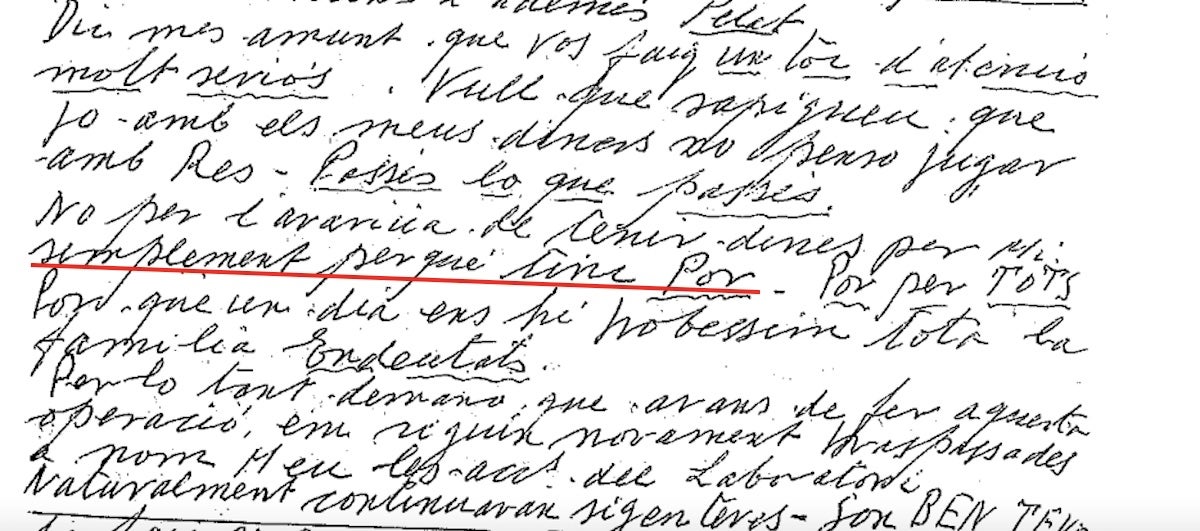 ademés Pelat
Dic mes amunt que vos faig un tòc d'atenció
molt seriós. Vull que sapigueu que
Jo amb els meus diners no penso jugar
amb Res - Passès lo que passès.
No per l'avaricia de tenir dines per Mi.
simplement perquè tinc Por - Por per TOTS
Por que un dia ens hi trobessim tota la
familia Endeutats.
Per lo tant demano que avans de fer aquesta
operació, em siguin novament traspassades
a nom Meu les acc.s del Laboratori
Naturalment continuaran sigen teves - Son BEN TEVES